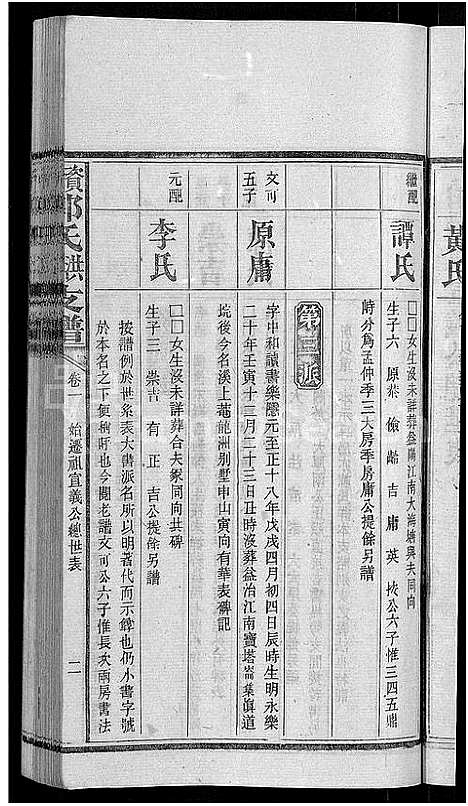 黃氏
繼配
譚氏
□□女生沒未詳葬益陽江南大海塘與夫同向
生子六 原荣 儉 齡 吉 庸 英 按公六子惟三四五鼎
時分為孟仲季三大房季房庸公提餘另譜
第三派
文可
五子
原庸
字中和讀書樂隱元至正十八年戊戌四月初四日辰時生明永樂
二十年壬寅十二月二十三日丑時沒葬益治江南寶塔崙葉滇道
垸後今名溪上菴龍洲別墅申山寅向有華表碑記
元配
李氏
□□女生沒未詳葬合夫冢同向共碑
生子三 崇吉 有 正 吉公提餘另譜
按譜例於世系表大書派名所以明著代而示餘也仍小書字號
於本名之下便稱呼也今閱老譜文可公六子惟長大兩房書法
資邱氏洪支譜
卷一 始遷祖宣義公總世表
二